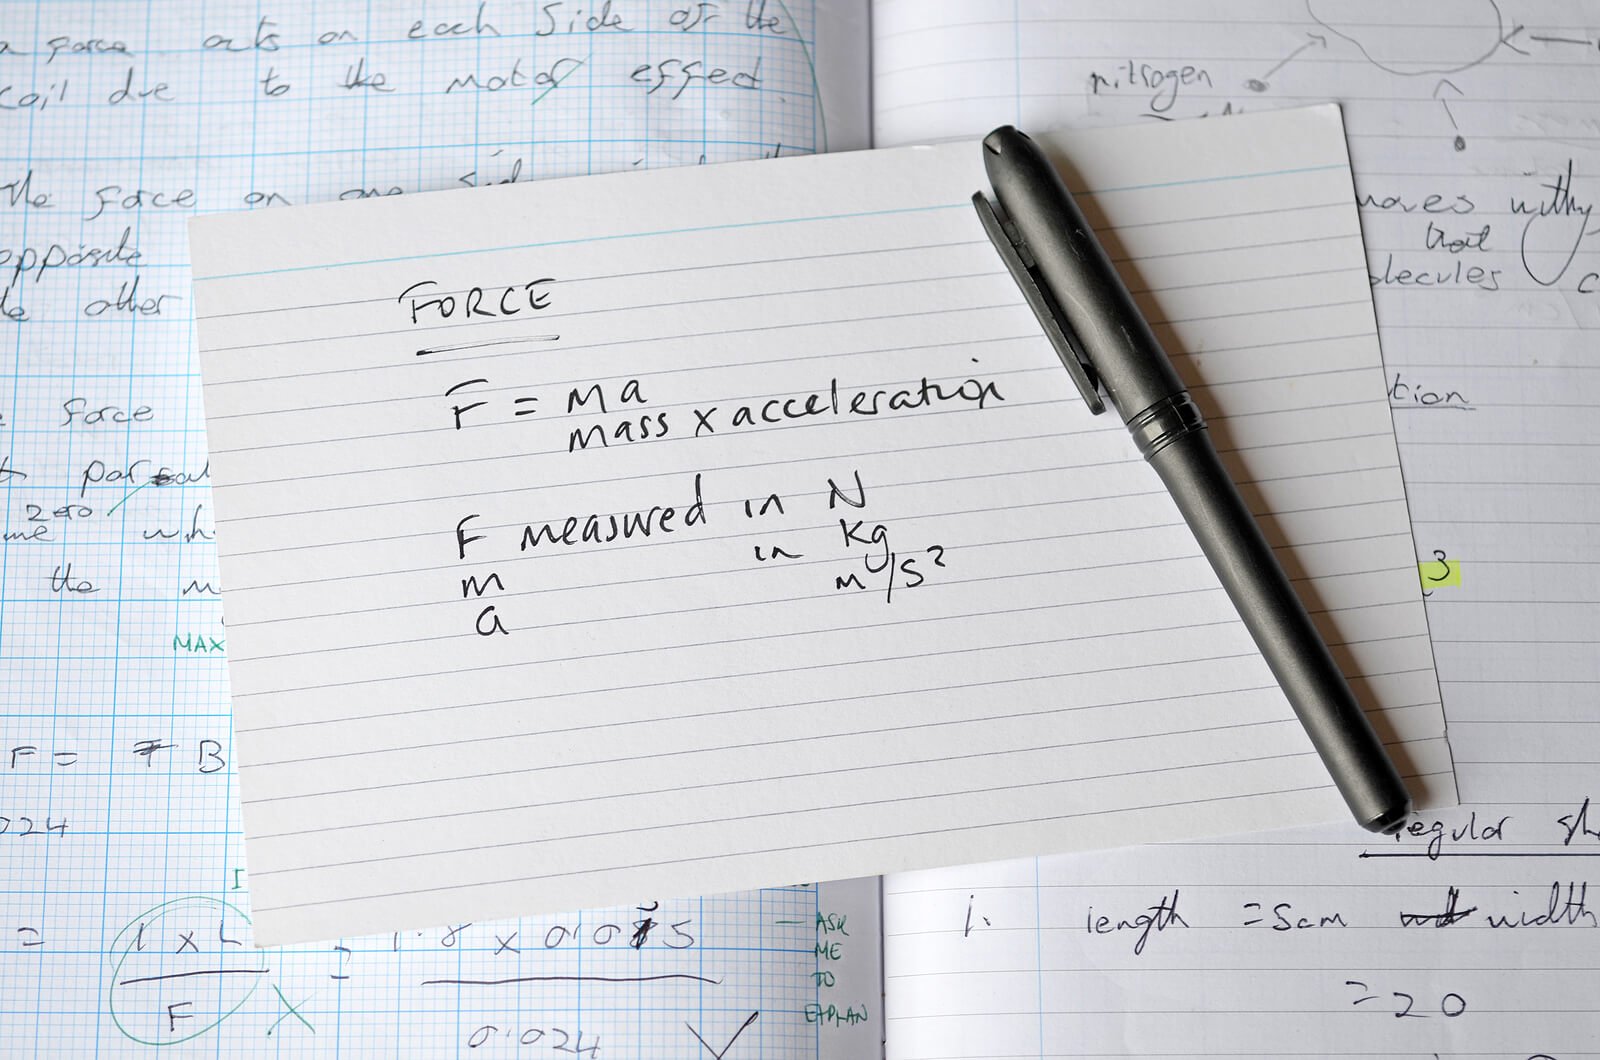 a force acts on each side of the
coil due to the motor effect.
The force on one
opposite
other
force
zero
the
MAX
F = B
024
= I x L = 1.8 x 0.0 5
F
0.024
ASK
ME
TO
EXPLAN
FORCE
F = ma
mass x acceleration
F measured in N
m in kg
a m/s²
nitrogen
moves
that
3
regular
1. length = 5cm width
= 20